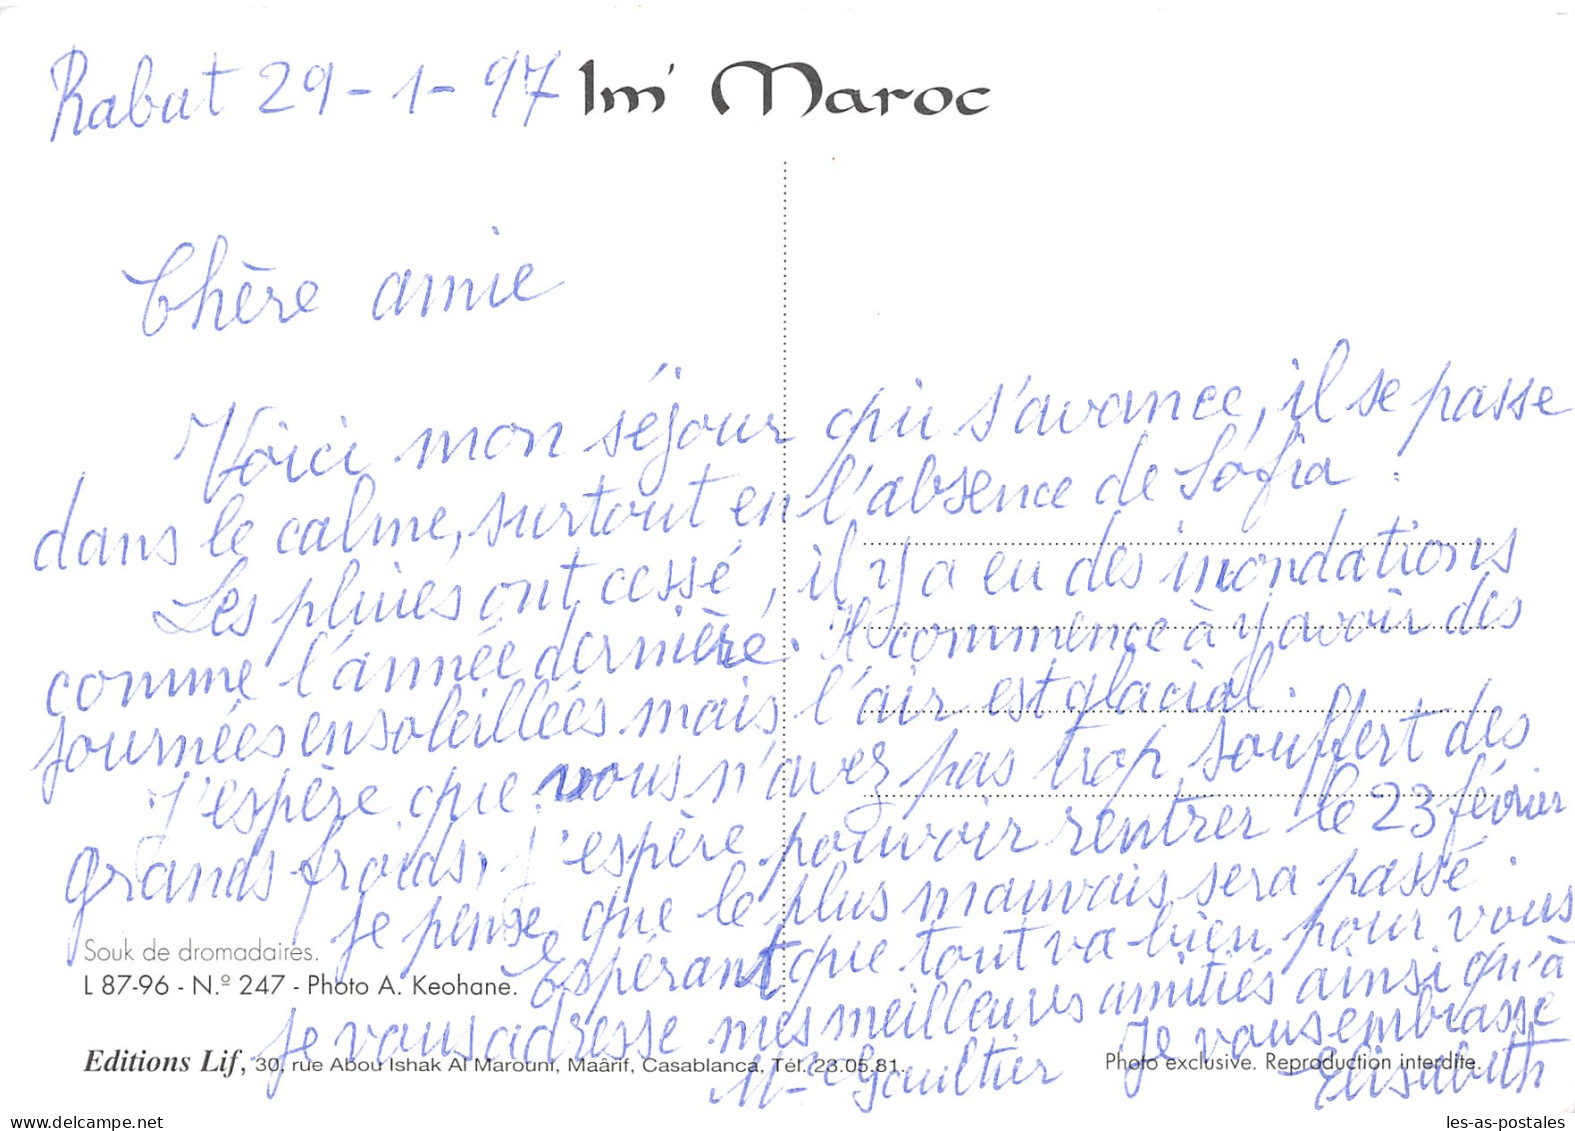 Rabat 29-1-97
Im' Maroc
Chère amie
Voici mon séjour qui s'avance, il se passe
dans le calme, surtout en l'absence de Sofia.
Les pluies ont cessé, il y a eu des inondations
comme l'année dernière. Il commence à y avoir des
journées ensoleillées mais l'air est glacial.
J'espère que vous n'avez pas trop souffert des
grands froids, j'espère pouvoir rentrer le 23 février
je pense que le plus mauvais sera passé.
Espérant que tout va bien pour vous
je vous adresse mes meilleures amitiés ainsi qu'à
Mme Gaultier
Je vous embrasse
Elisabeth
Souk de dromadaires.
L 87-96 - N.º 247 - Photo A. Keohane.
Editions Lif, 30, rue Abou Ishak Al Marouni, Maârif, Casablanca, Tél. 23.05.81.
Photo exclusive. Reproduction interdite.
delcampe.net
les-as-postales